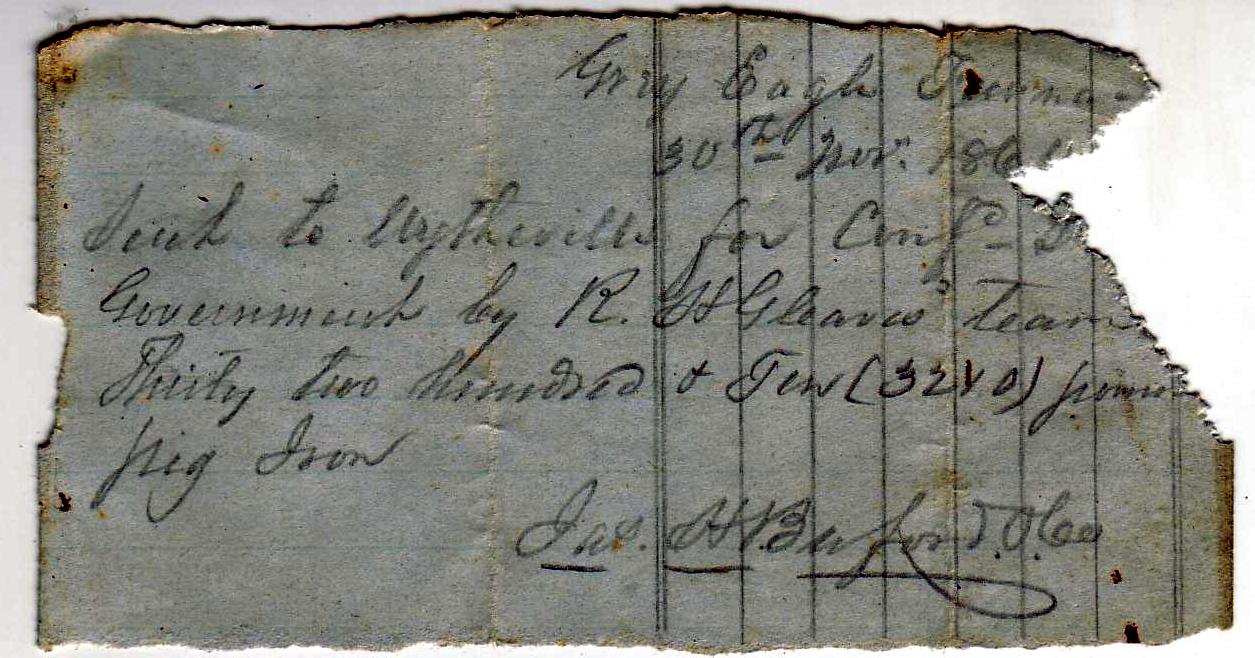 Grey Eagle Furna
30th Nov. 186
Sent to Wytheville for Conf
Government by R. H Gleaves team
Thirty two Hundred & Ten (3210) poun
pig Iron
Jas. H. Buford & Co